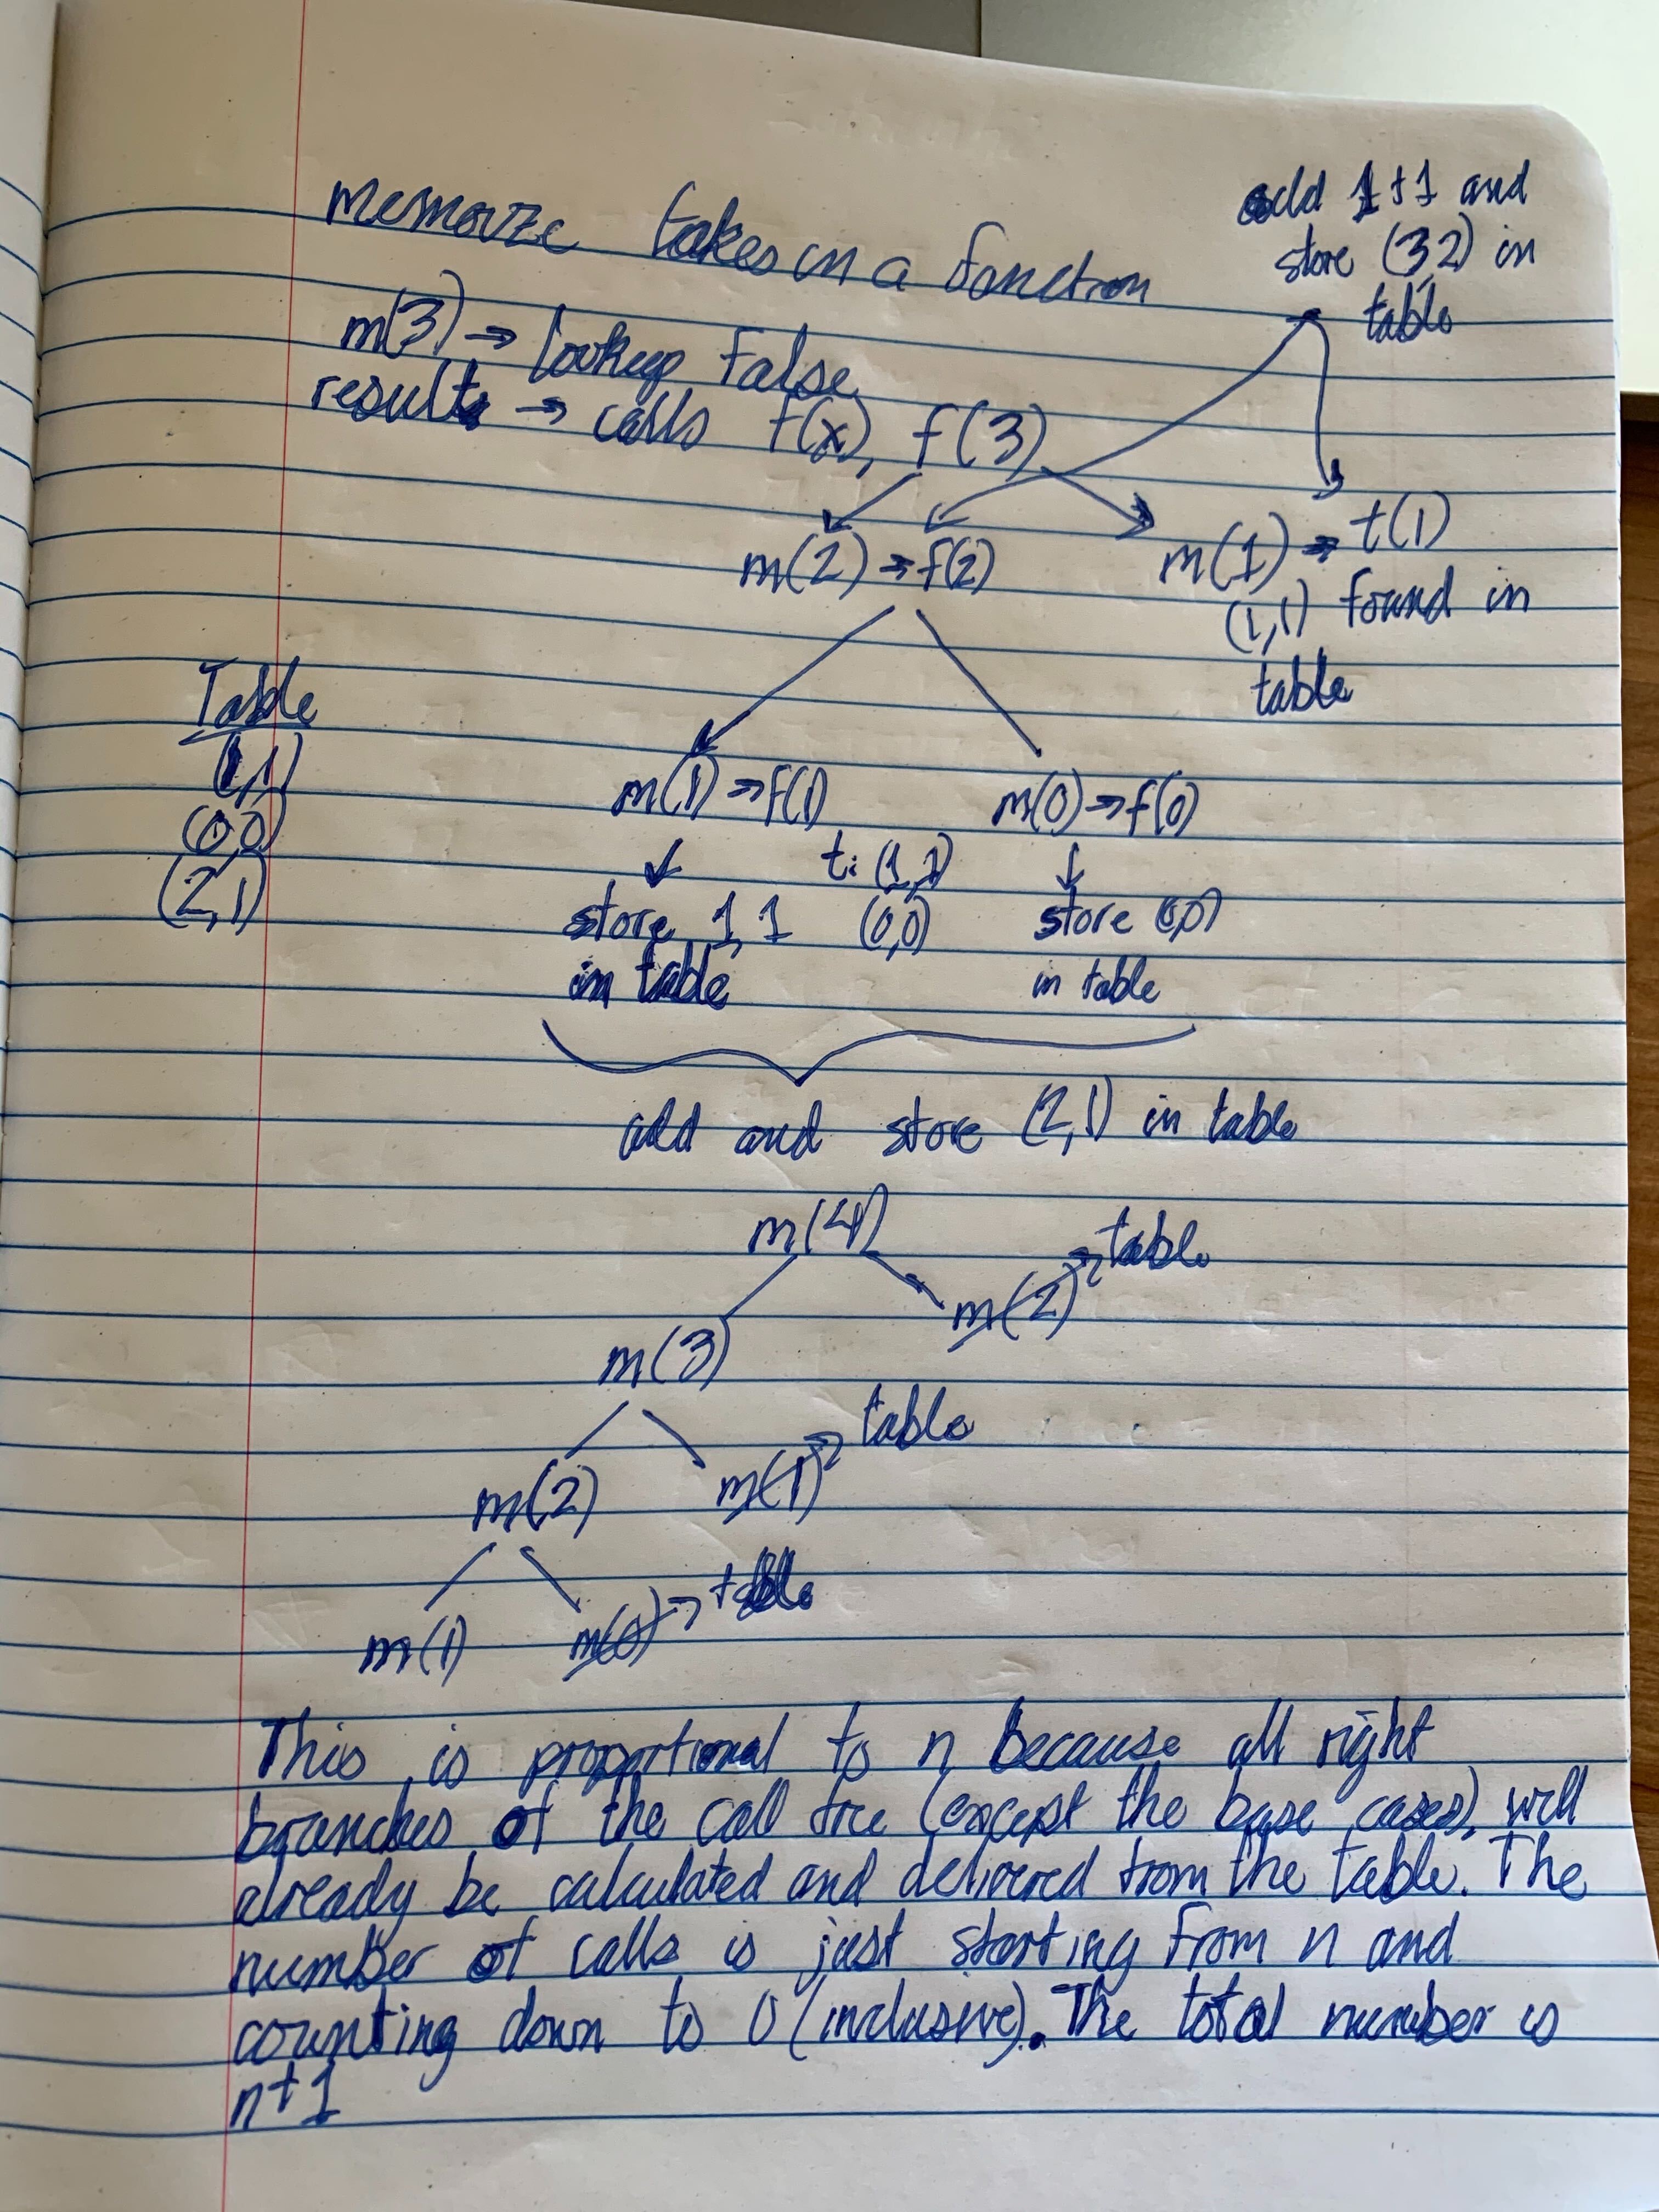 memoize takes in a function
add 1+1 and
store (3,2) in
table
m(3) → lookup False
results → calls f(x), f(3)
m(2) → f(2)
m(1) → t(1)
(1,1) found in
table
Table
(1,1)
(0,0)
(2,1)
m(1) → f(1)
m(0) → f(0)
t: (1,1)
(0,0)
store 1,1
in table
store (0,0)
in table
add and store (2,1) in table
m(4)
m(3)
m(2) → table
m(2)
m(1) → table
m(1)
m(0) → table
This is proportional to n because all right
branches of the call tree (except the base cases), will
already be calculated and delivered from the table. The
number of calls is just starting from n and
counting down to 0 (inclusive). The total number is
n+1